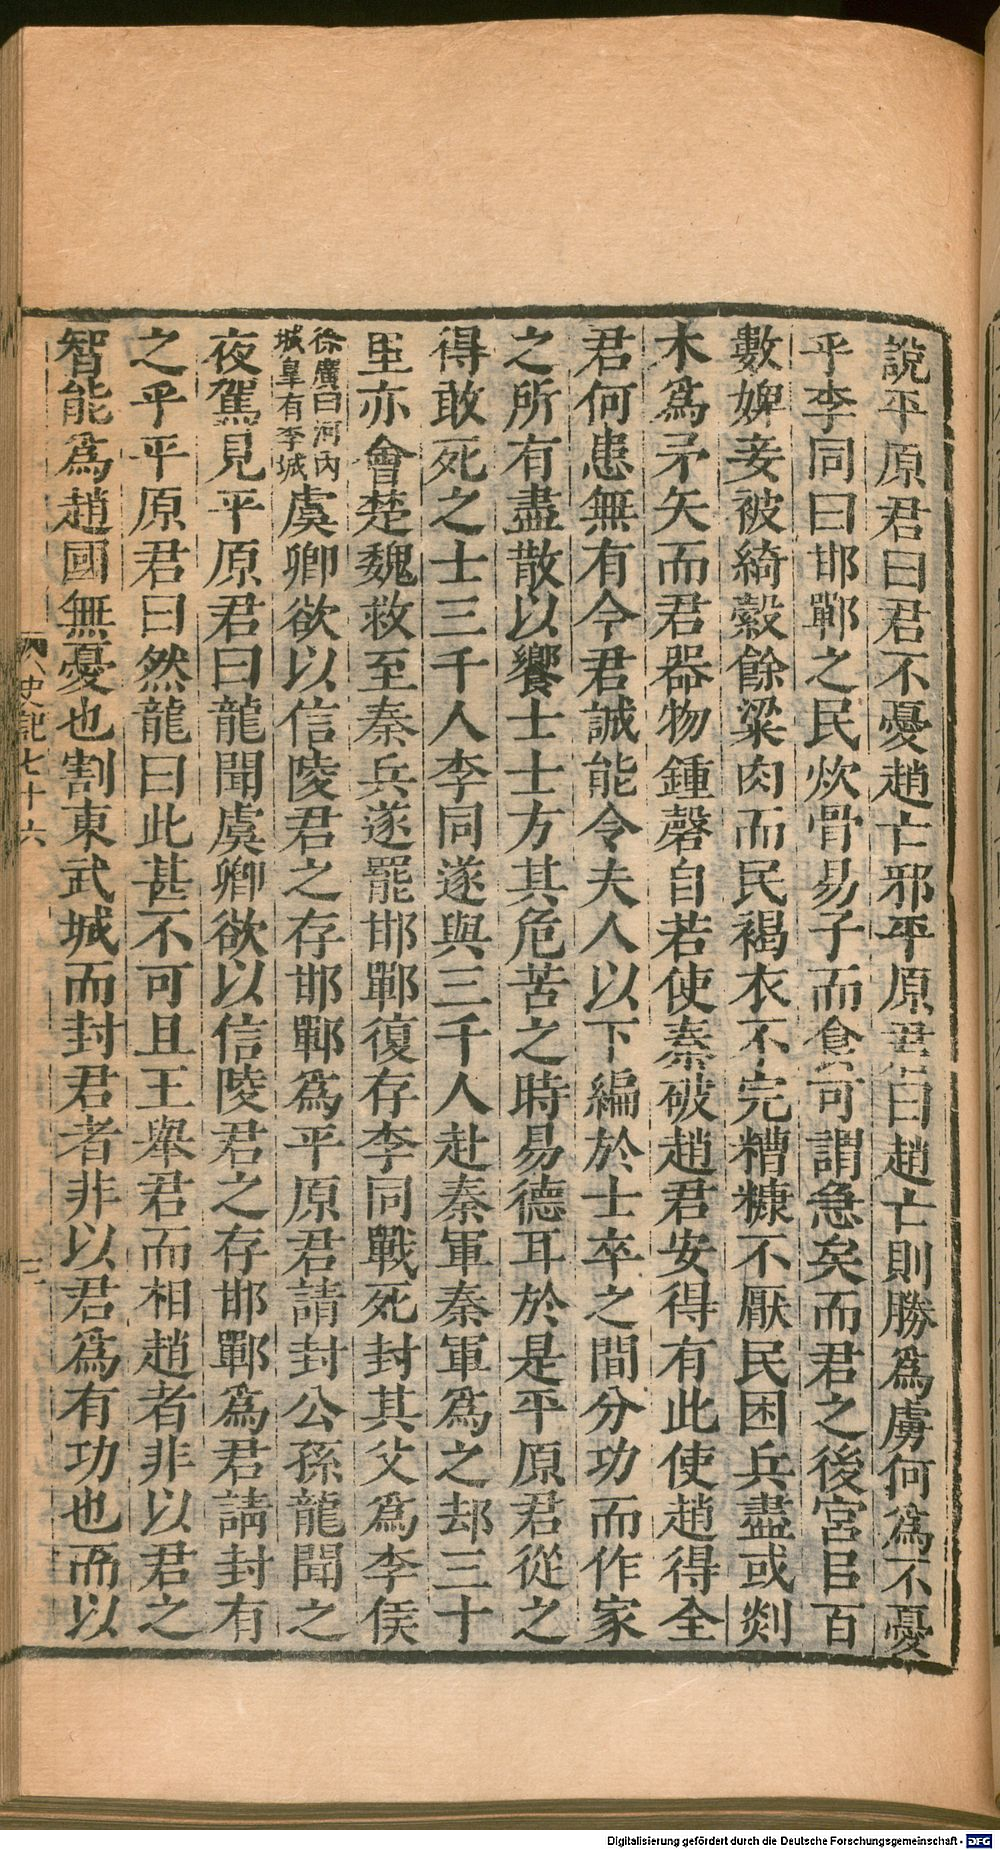 說平原君曰君不憂趙亡邪平原君曰趙亡則勝爲虜何爲不憂
乎李同曰邯鄲之民炊骨易子而食可謂急矣而君之後宮㠯百
數婢妾被綺縠餘粱肉而民褐衣不完糟糠不厭民困兵盡或剡
木爲矛矢而君器物鍾磬自若使秦破趙君安得有此使趙得全
君何患無有今君誠能令夫人以下編於士卒之間分功而作家
之所有盡散以饗士士方其危苦之時易德耳於是平原君從之
得敢死之士三千人李同遂與三千人赴秦軍秦軍爲之却三十
里亦會楚魏救至秦兵遂罷邯鄲復存李同戰死封其父爲李侯
徐廣曰河內
城皐有李城
虞卿欲以信陵君之存邯鄲爲平原君請封公孫龍聞之
夜駕見平原君曰龍聞虞卿欲以信陵君之存邯鄲爲君請封有
之乎平原君曰然龍曰此甚不可且王舉君而相趙者非以君之
智能爲趙國無憂也割東武城而封君者非以君爲有功也而以
史記七十六
三
Digitalisierung gefördert durch die Deutsche Forschungsgemeinschaft - DFG